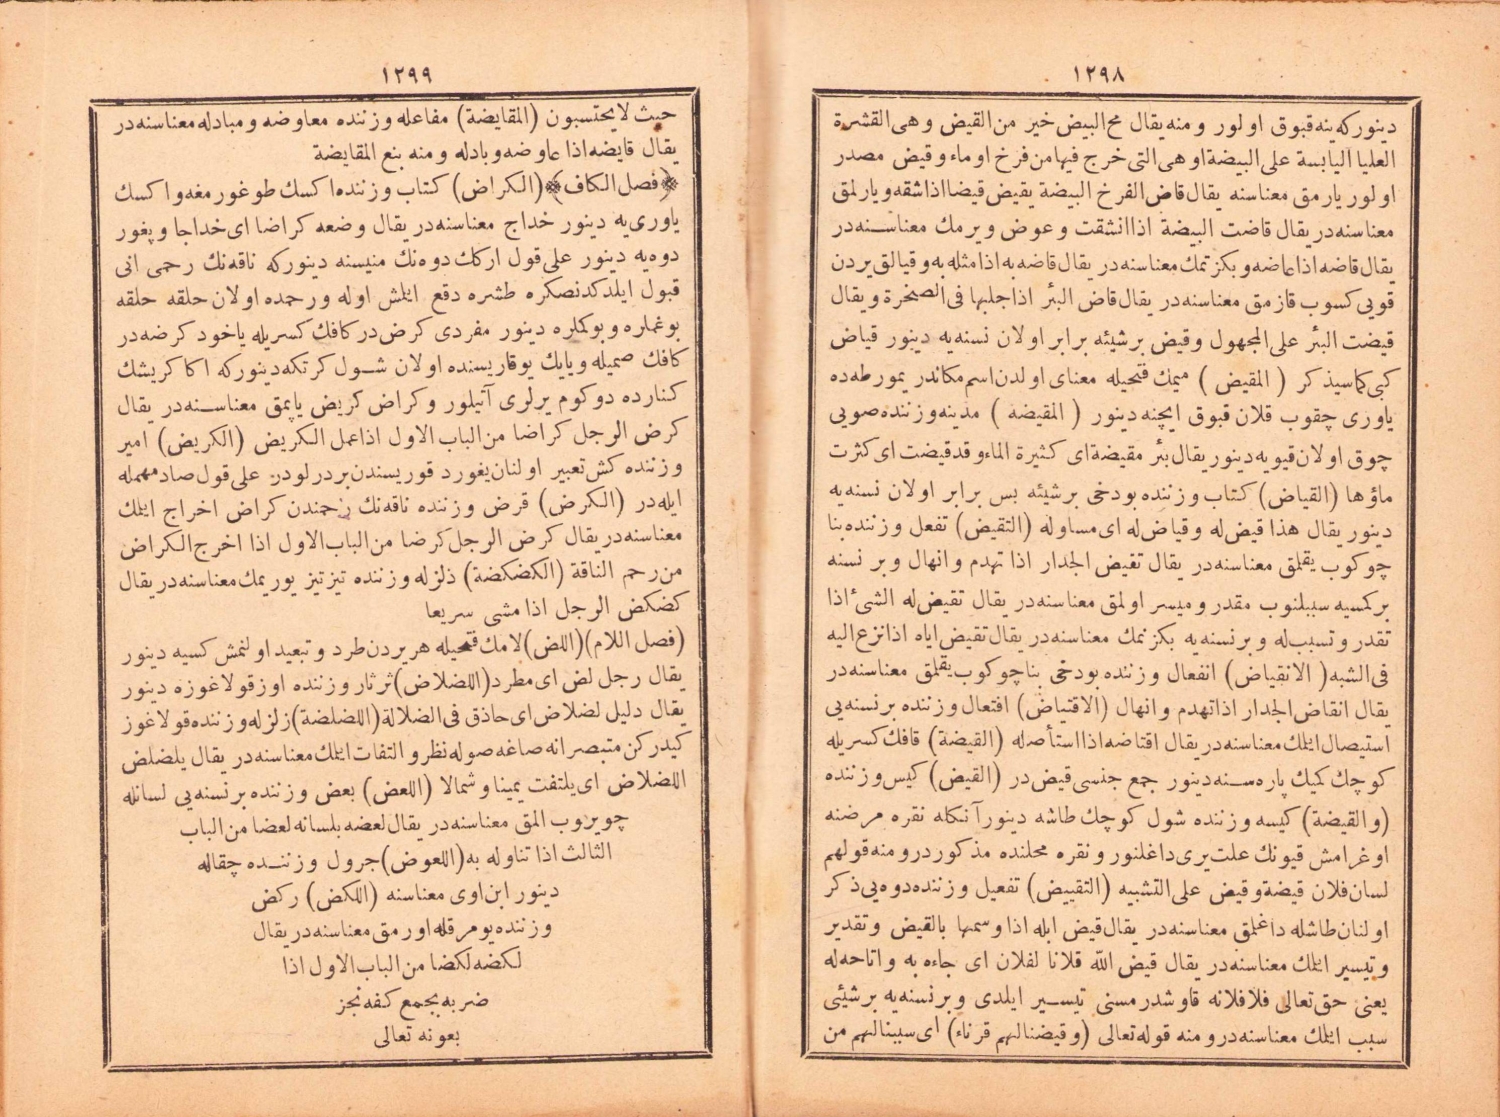 ١٢٩٨
دينوركه ينه قبوق اولور ومنه يقال مح البيض خير من القيض وهى القشرة
العليا اليابسة على البيضة او هى التى خرج فيها من فرخ او ماء وقيض مصدر
اولور يارمق معناسنه يقال قاض الفرخ البيضة يقيض قيضا اذا شقه ويارلمق
معناسنه در يقال قاضت البيضة اذا انشقت وعوض ويرمك معناسنه در
يقال قاضه اذا عاضه وبكزتمك معناسنه در يقال قاضه به اذا مثله به وقيالق يردن
قويى كسوب قازمق معناسنه در يقال قاض البئر اذا جلبها فى الصخرة ويقال
قيضت البئر على المجهول وقيض برشيئه برابر اولان نسنه يه دينور قياض
كبى كما سيذكر ( المقيض ) ميمك فتحيله معناى اولدن اسم مكاندر يمورطه ده
ياورى چقوب قلان قبوق ايچنه دينور ( المقيضه ) مدينه وزننده صويى
چوق اولان قيويه دينور يقال بئر مقيضة اى كثيرة الماء وقد قيضت اى كثرت
ماؤها (القياض) كتاب وزننده بودخى برشيئه بس برابر اولان نسنه يه
دينور يقال هذا قيض له وقياض له اى مساو له (التقيض) تفعل وزننده بنا
چوكوب يقلمق معناسنه در يقال تقيض الجدار اذا تهدم وانهال وبر نسنه
بركمسيه سببلنوب مقدر وميسر اولمق معناسنه در يقال تقيض له الشئ اذا
تقدر وتسبب له وبرنسنه يه بكزنمك معناسنه در يقال تقيض اياه اذا نزع اليه
فى الشبه ( الانقياض) انفعال وزننده بودخى بنا چوكوب يقلمق معناسنه در
يقال انقاض الجدار اذا تهدم وانهال (الاقتياض) افتعال وزننده برنسنه يى
استيصال ايتمك معناسنه در يقال اقتاضه اذا استأصله (القيضة) قافك كسريله
كوچك كميك پاره سنه دينور جمع جنسى قيض در (القيض) كيس وزننده
(والقيضة) كيسه وزننده شول كوچك طاشه دينور آنكله نقره مرضنه
اوغرامش قيونك علت يرى داغلنور ونقره محلنده مذكوردر ومنه قولهم
لسان فلان قيضة وقيض على التشبيه (التقييض) تفعيل وزننده دوه يى ذكر
اولنان طاشله داغلمق معناسنه در يقال قيض ابله اذا وسمها بالقيض وتقدير
وتيسير ايتمك معناسنه در يقال قيض الله فلانا لفلان اى جاءه به واتاحه له
يعنى حق تعالى فلا فلانه قاوشدرمسنى تيسير ايلدى وبرنسنه يه برشيئى
سبب ايتمك معناسنه در ومنه قوله تعالى (وقيضنا لهم قرناء) اى سببنا لهم من
١٢٩٩
حيث لا يحتسبون (المقايضة) مفاعله وزننده معاوضه ومبادله معناسنه در
يقال قايضه اذا عاوضه وبادله ومنه بيع المقايضة
﴿فصل الكاف﴾ (الكراض) كتاب وزننده اكسك طوغورمغه واكسك
ياورى يه دينور خداج معناسنه در يقال وضعه كراضا اى خداجا ويغور
دوه يه دينور على قول اركك دوه نك منيسنه دينوركه ناقه نك رحمى انى
قبول ايلدكدنصكره طشره دفع ايتمش اوله ورحمده اولان حلقه حلقه
بوغماره وبوكملره دينور مفردى كرض در كافك كسريله ياخود كرضه در
كافك ضميله ويايك يوقاريسنده اولان شول كرتكه دينوركه اكا كريشك
كنارده دوكوم يرلرى آتيلور وكراض كريض ياپمق معناسنه در يقال
كرض الرجل كراضا من الباب الاول اذا عمل الكريض (الكريض) امير
وزننده كش تعبير اولنان يغورد قوريسندن بردرلودر على قول صاد مهمله
ايله در (الكرض) قرض وزننده ناقه نك رحمندن كراض اخراج ايتمك
معناسنه در يقال كرض الرجل كرضا من الباب الاول اذا اخرج الكراض
من رحم الناقة (الكضكضة) زلزله وزننده تيز تيز يوريمك معناسنه در يقال
كضكض الرجل اذا مشى سريعا
(فصل اللام) (اللض) لامك فتحيله هر يردن طرد وتبعيد اولنمش كسيه دينور
يقال رجل لض اى مطرد (اللضلاض) ثرثار وزننده اوز قولاغوزه دينور
يقال دليل لضلاض اى حاذق فى الضلالة (اللضلضة) زلزله وزننده قولاغوز
كيدركن متبصرانه صاغه صوله نظر والتفات ايتمك معناسنه در يقال يلضلض
اللضلاض اى يلتفت يمينا وشمالا (اللعض) بعض وزننده برنسنه يى لسانله
چويروب المق معناسنه در يقال لعضه بلسانه لعضا من الباب
الثالث اذا تناوله به (اللعوض) جرول وزننده چقاله
دينور ابن اوى معناسنه (اللكض) ركض
وزننده يومرقله اورمق معناسنه در يقال
لكضه لكضا من الباب الاول اذا
ضربه بجمع كفه نجز
بعونه تعالى